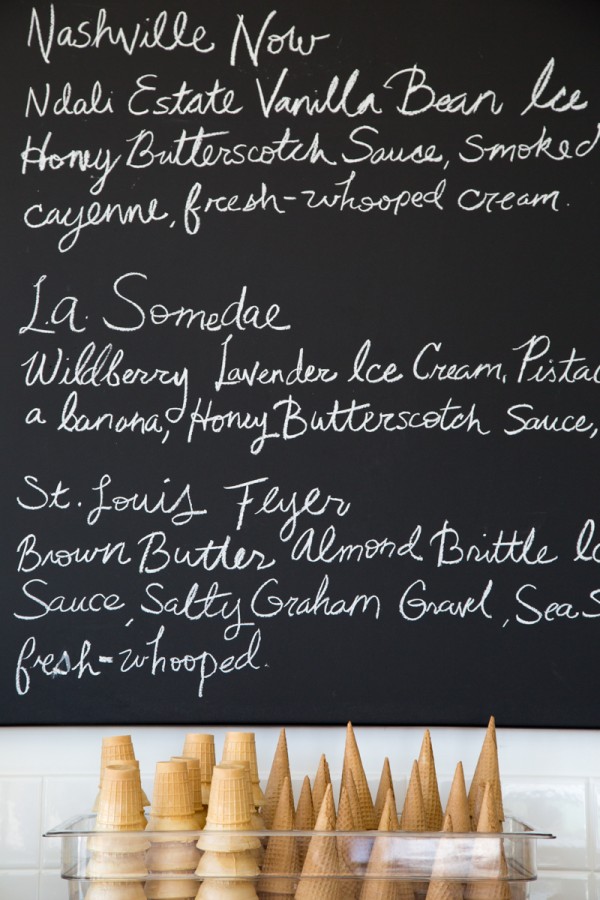 Nashville Now
Ndali Estate Vanilla Bean Ice
Honey Butterscotch Sauce, smoked
cayenne, fresh-whooped cream.
L.a. Somedae
Wildberry Lavender Ice Cream, Pistac
a banana, Honey Butterscotch Sauce,
St. Louis Flyer
Brown Butter Almond Brittle Ic
Sauce, Salty Graham Gravel, Sea S
fresh-whooped.